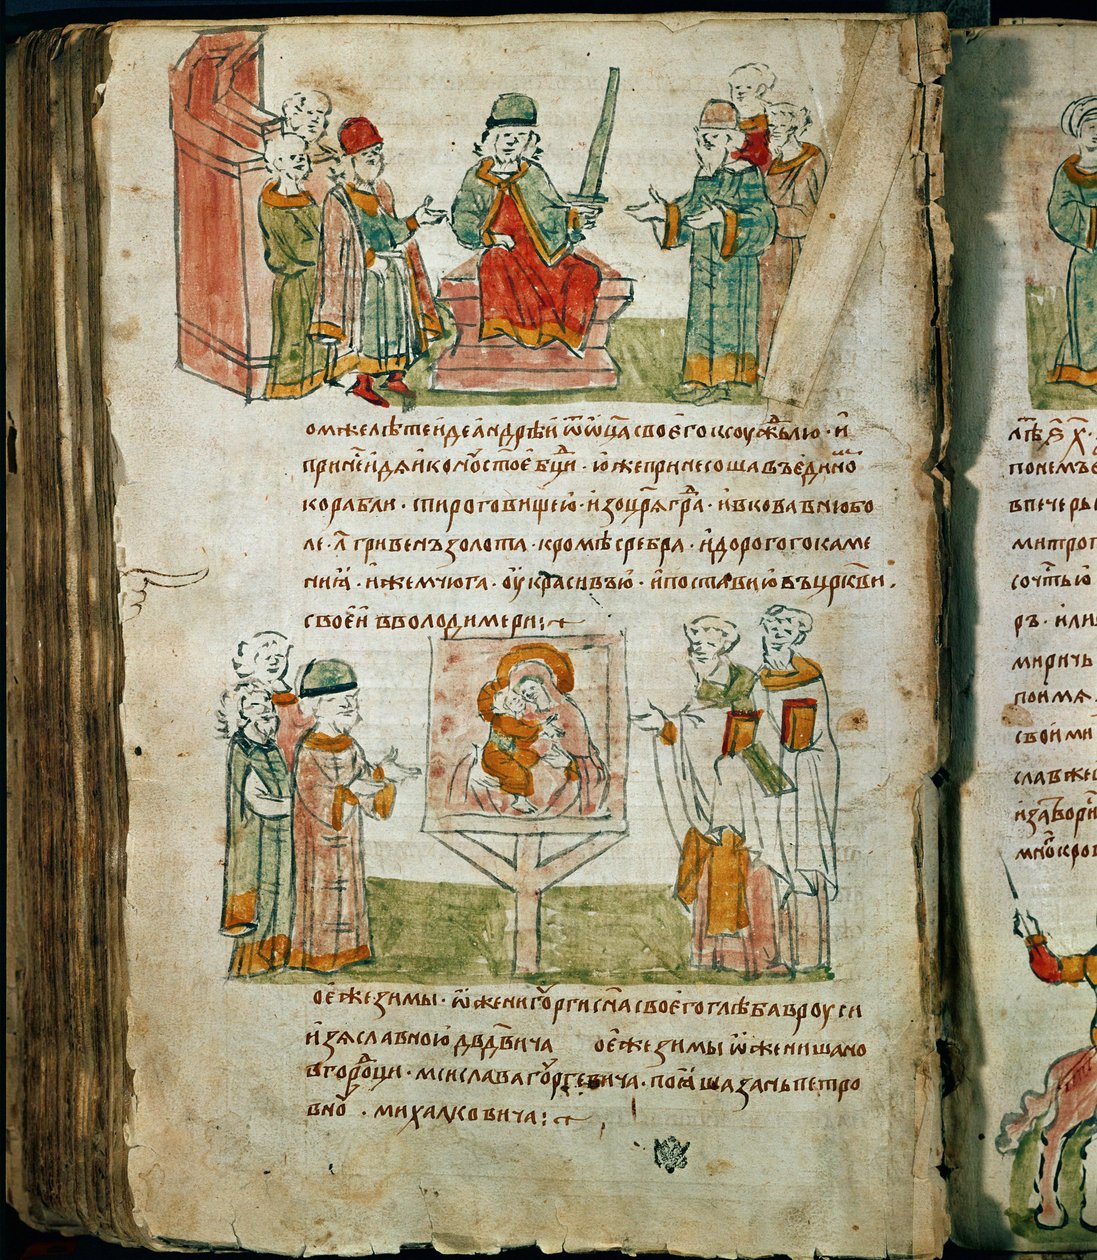 омже лѣте иде андрѣи ѿ ѡц҃а своего к соуждⷣлю · и
прине и дꙗ иконоу ст҃ое бц҃и · юже принесоша въ едино
корабли · с пироговищею · из оцр҃ѧгрⷣа · и вкова в ню бо
ле · л҃ гривенъ золота · кромѣ сребра · и дорогого каме
ниꙗ · и жемчюга · оукрасивъ ю · и постави ю въ црк҃ви ·
своеи в володимери :
ое же зимы · ѡжени гюрги сн҃а своего глѣба в роуси
изѧславною дв҃двича ое же зимы ѡжениша но
вгорⷪци · мстислава гюргевича · поѧша за нь петро
вноу · михалковича :
лѣⷮ ѕ҃ х҃
по немъ
в печерь
митроп
ръ · или
миричь
поимѧ
свои мн
слав же
и затвори
много кров